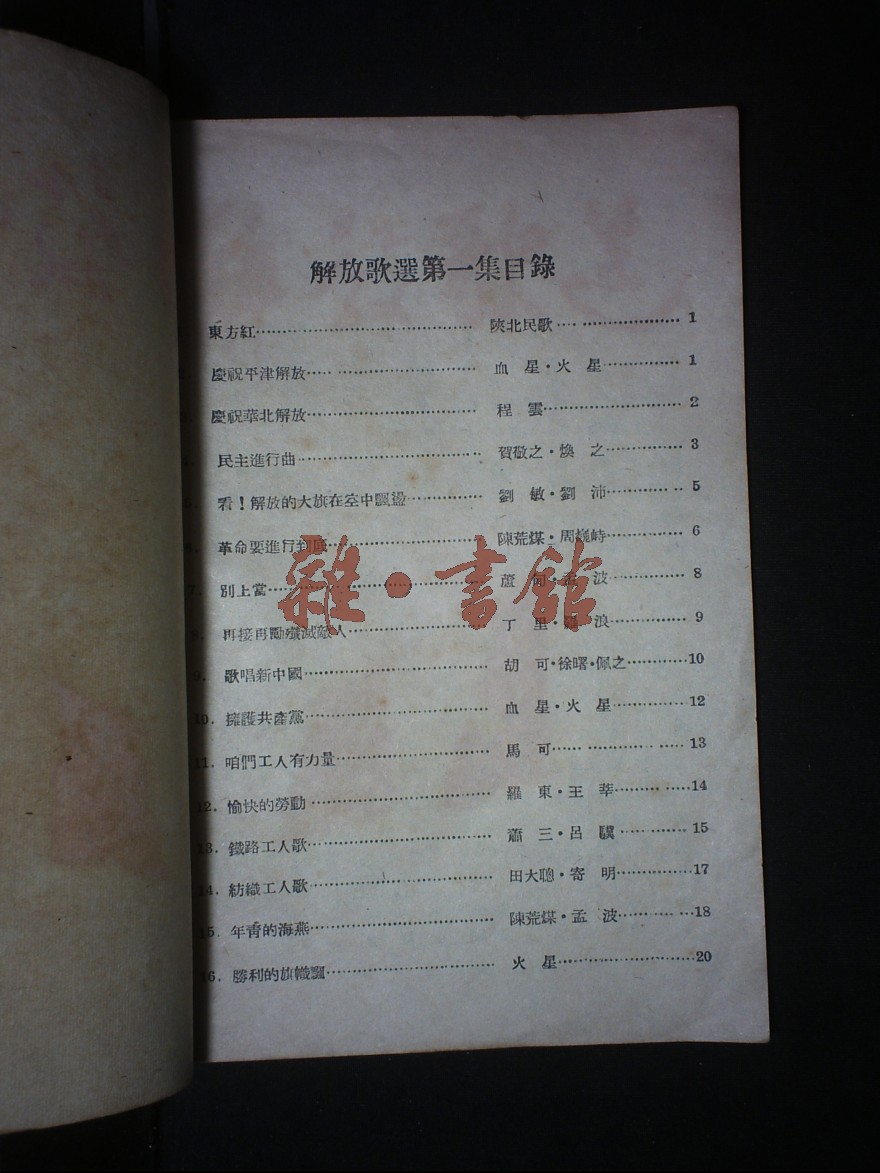 解放歌選第一集目錄
東方紅 陝北民歌 1
慶祝平津解放 血星·火星 1
慶祝華北解放 程雲 2
民主進行曲 賀敬之·煥之 3
看！解放的大旗在空中飄盪 劉敏·劉沛 5
革命要進行到底 陳荒煤·周巍峙 6
別上當 蘆甸·孟波 8
8. 再接再勵殲滅敵人 丁里·羅浪 9
9. 歌唱新中國 胡可·徐曙·佩之 10
10. 擁護共產黨 血星·火星 12
11. 咱們工人有力量 馬可 13
12. 愉快的勞動 羅東·王莘 14
13. 鐵路工人歌 蕭三·呂驥 15
14. 紡織工人歌 田大聰·寄明 17
15. 年青的海燕 陳荒煤·孟波 18
16. 勝利的旗幟飄 火星 20
雜·書館